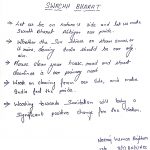 SWACHH BHARAT
→ Let us be on nature's side and let us make
Swachh Bharat Abhiyan our pride.
→ Whether the Sun shines or storm comes, or
it rains, cleaning India should be our
aim.
→ Please clean your house, road and street
cleanliness is our primary need.
→ Work on cleaning from our side, and make
India feel the pride.
→ Working towards Sanitation will bring a
significant positive change for the Nation.
Name